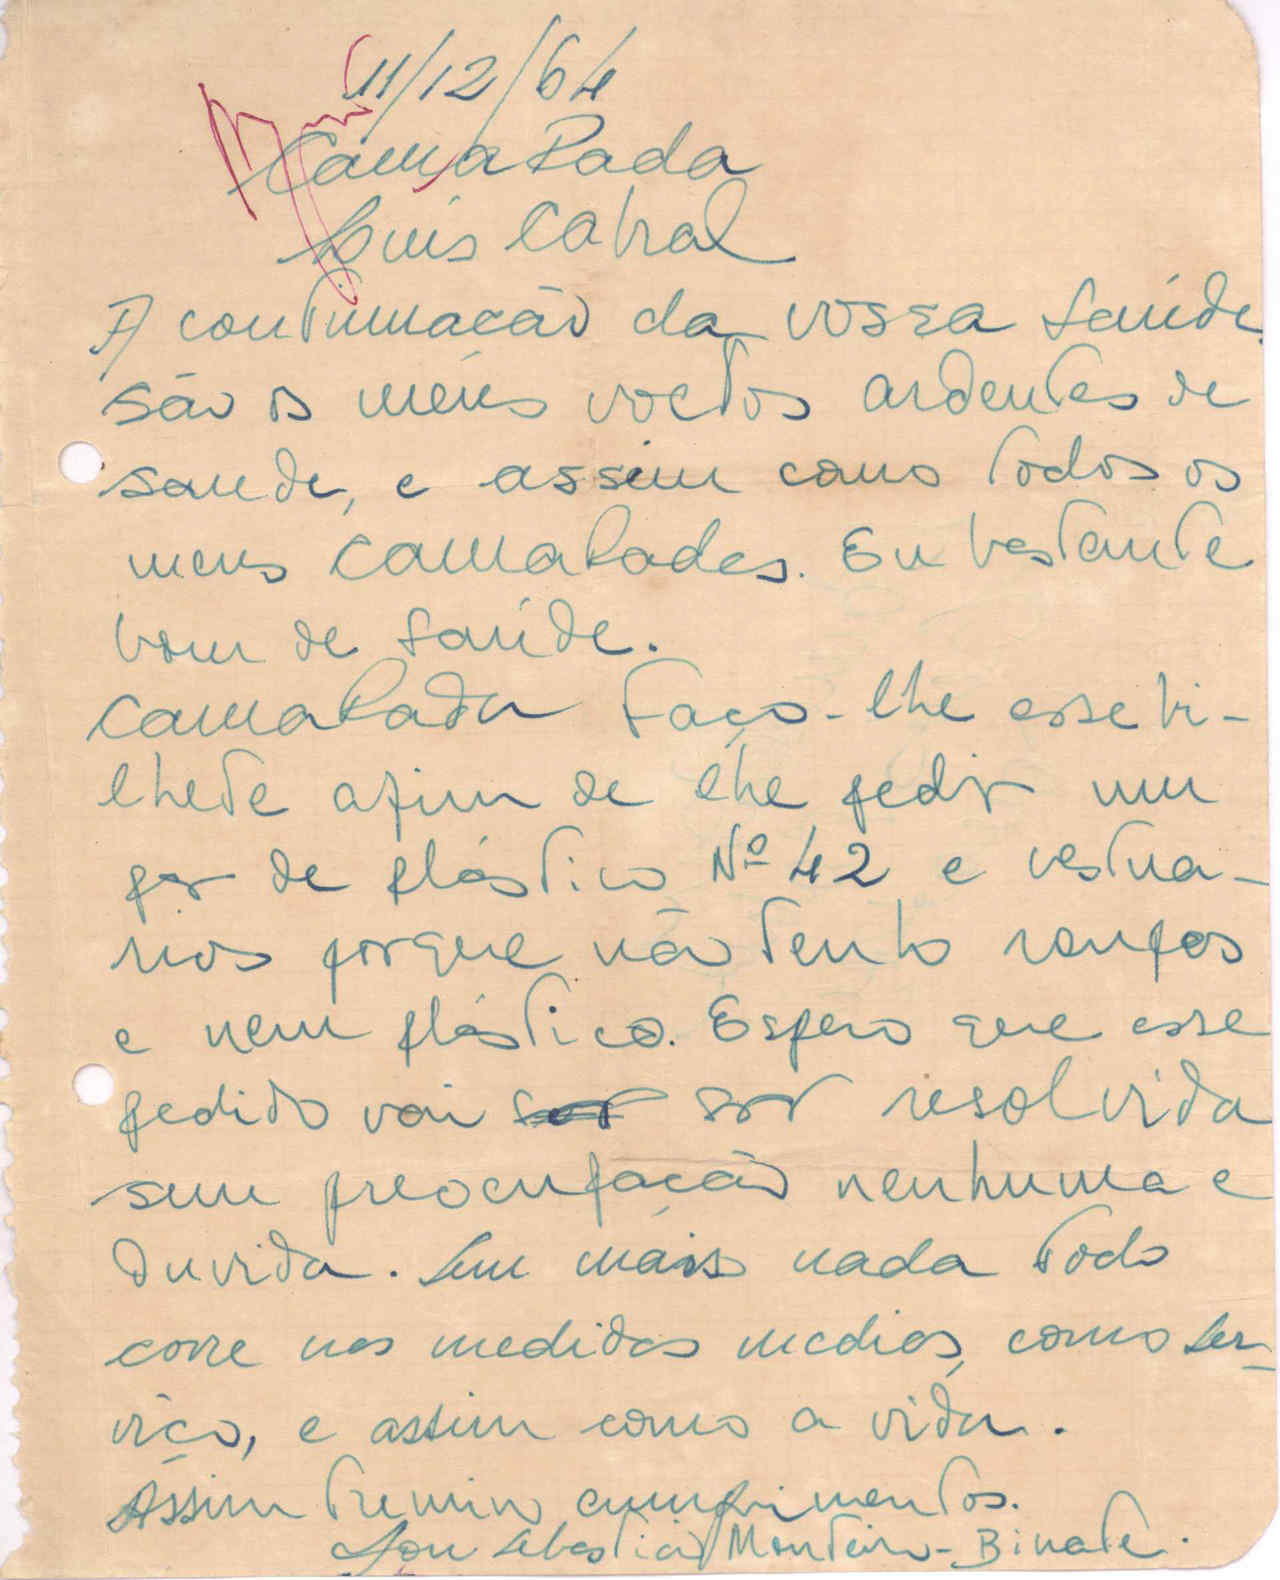 11/12/64
Camarada
Luís Cabral
A continuacão da vossa saúde
são os méus voctos ardentes de
saude, e assim como todos os
meus camarades. Eu bastante
bom de saúde.
Camarada faço-lhe esse bi-
lhete afim de lhe pedir um
par de plástico Nº 42 e vestua-
rios porque não tenho roupas
e nem plástico. Espero que esse
pedido vai ser resolvida
sem preocupacão nenhuma e
duvida. Sem máis nada todo
corre nas medidas medias, como ser-
viço, e assim como a vida.
Assim tremino cumprimentos.
Sou Sebastião Monteiro - Binate.